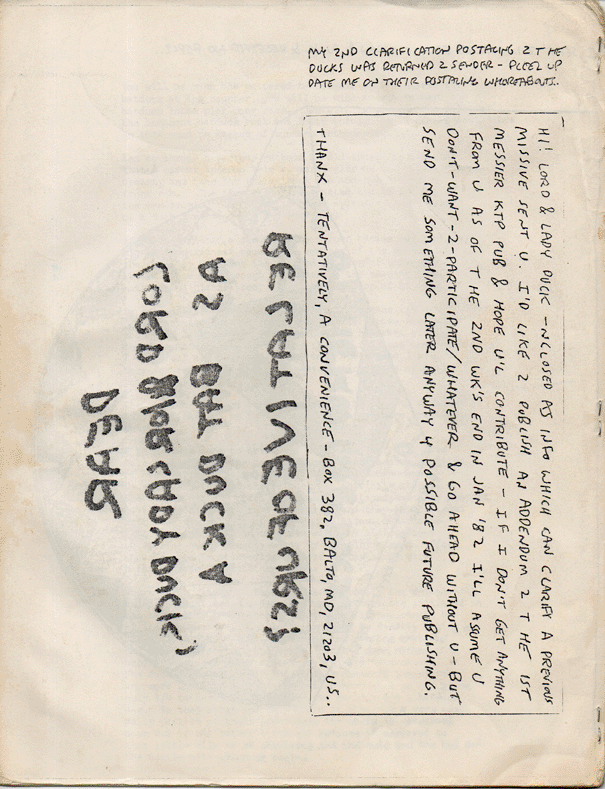 MY 2ND CLARIFICATION POSTALING 2 T HE
DUCKS WAS RETURNED 2 SENDER - PLEEZ UP
DATE ME ON THEIR POSTALING WHOREABOUTS..
HI! LORD & LADY DUCK - NCLOSED AS INFO WHICH CAN CLARIFY A PREVIOUS
MISSIVE SENT U. I'D LIKE 2 PUBLISH AN ADDENDUM 2 T HE 1ST
MESSIER KTP PUB & HOPE U'L CONTRIBUTE - IF I DON'T GET ANYTHING
FROM U AS OF T HE 2ND WK'S END IN JAN '82 I'LL ASSUME U
DON'T-WANT-2-PARTICIPATE/WHATEVER & GO AHEAD WITHOUT U - BUT
SEND ME SOMETHING LATER ANYWAY 4 POSSIBLE FUTURE PUBLISHING.
THANX - TENTATIVELY, A CONVENIENCE - BOX 382, BALTO, MD, 21203, US..
DEAR
LORD &/OR LADY DUCK,
AS BAT DUCK A
RELATIVE OF URS?